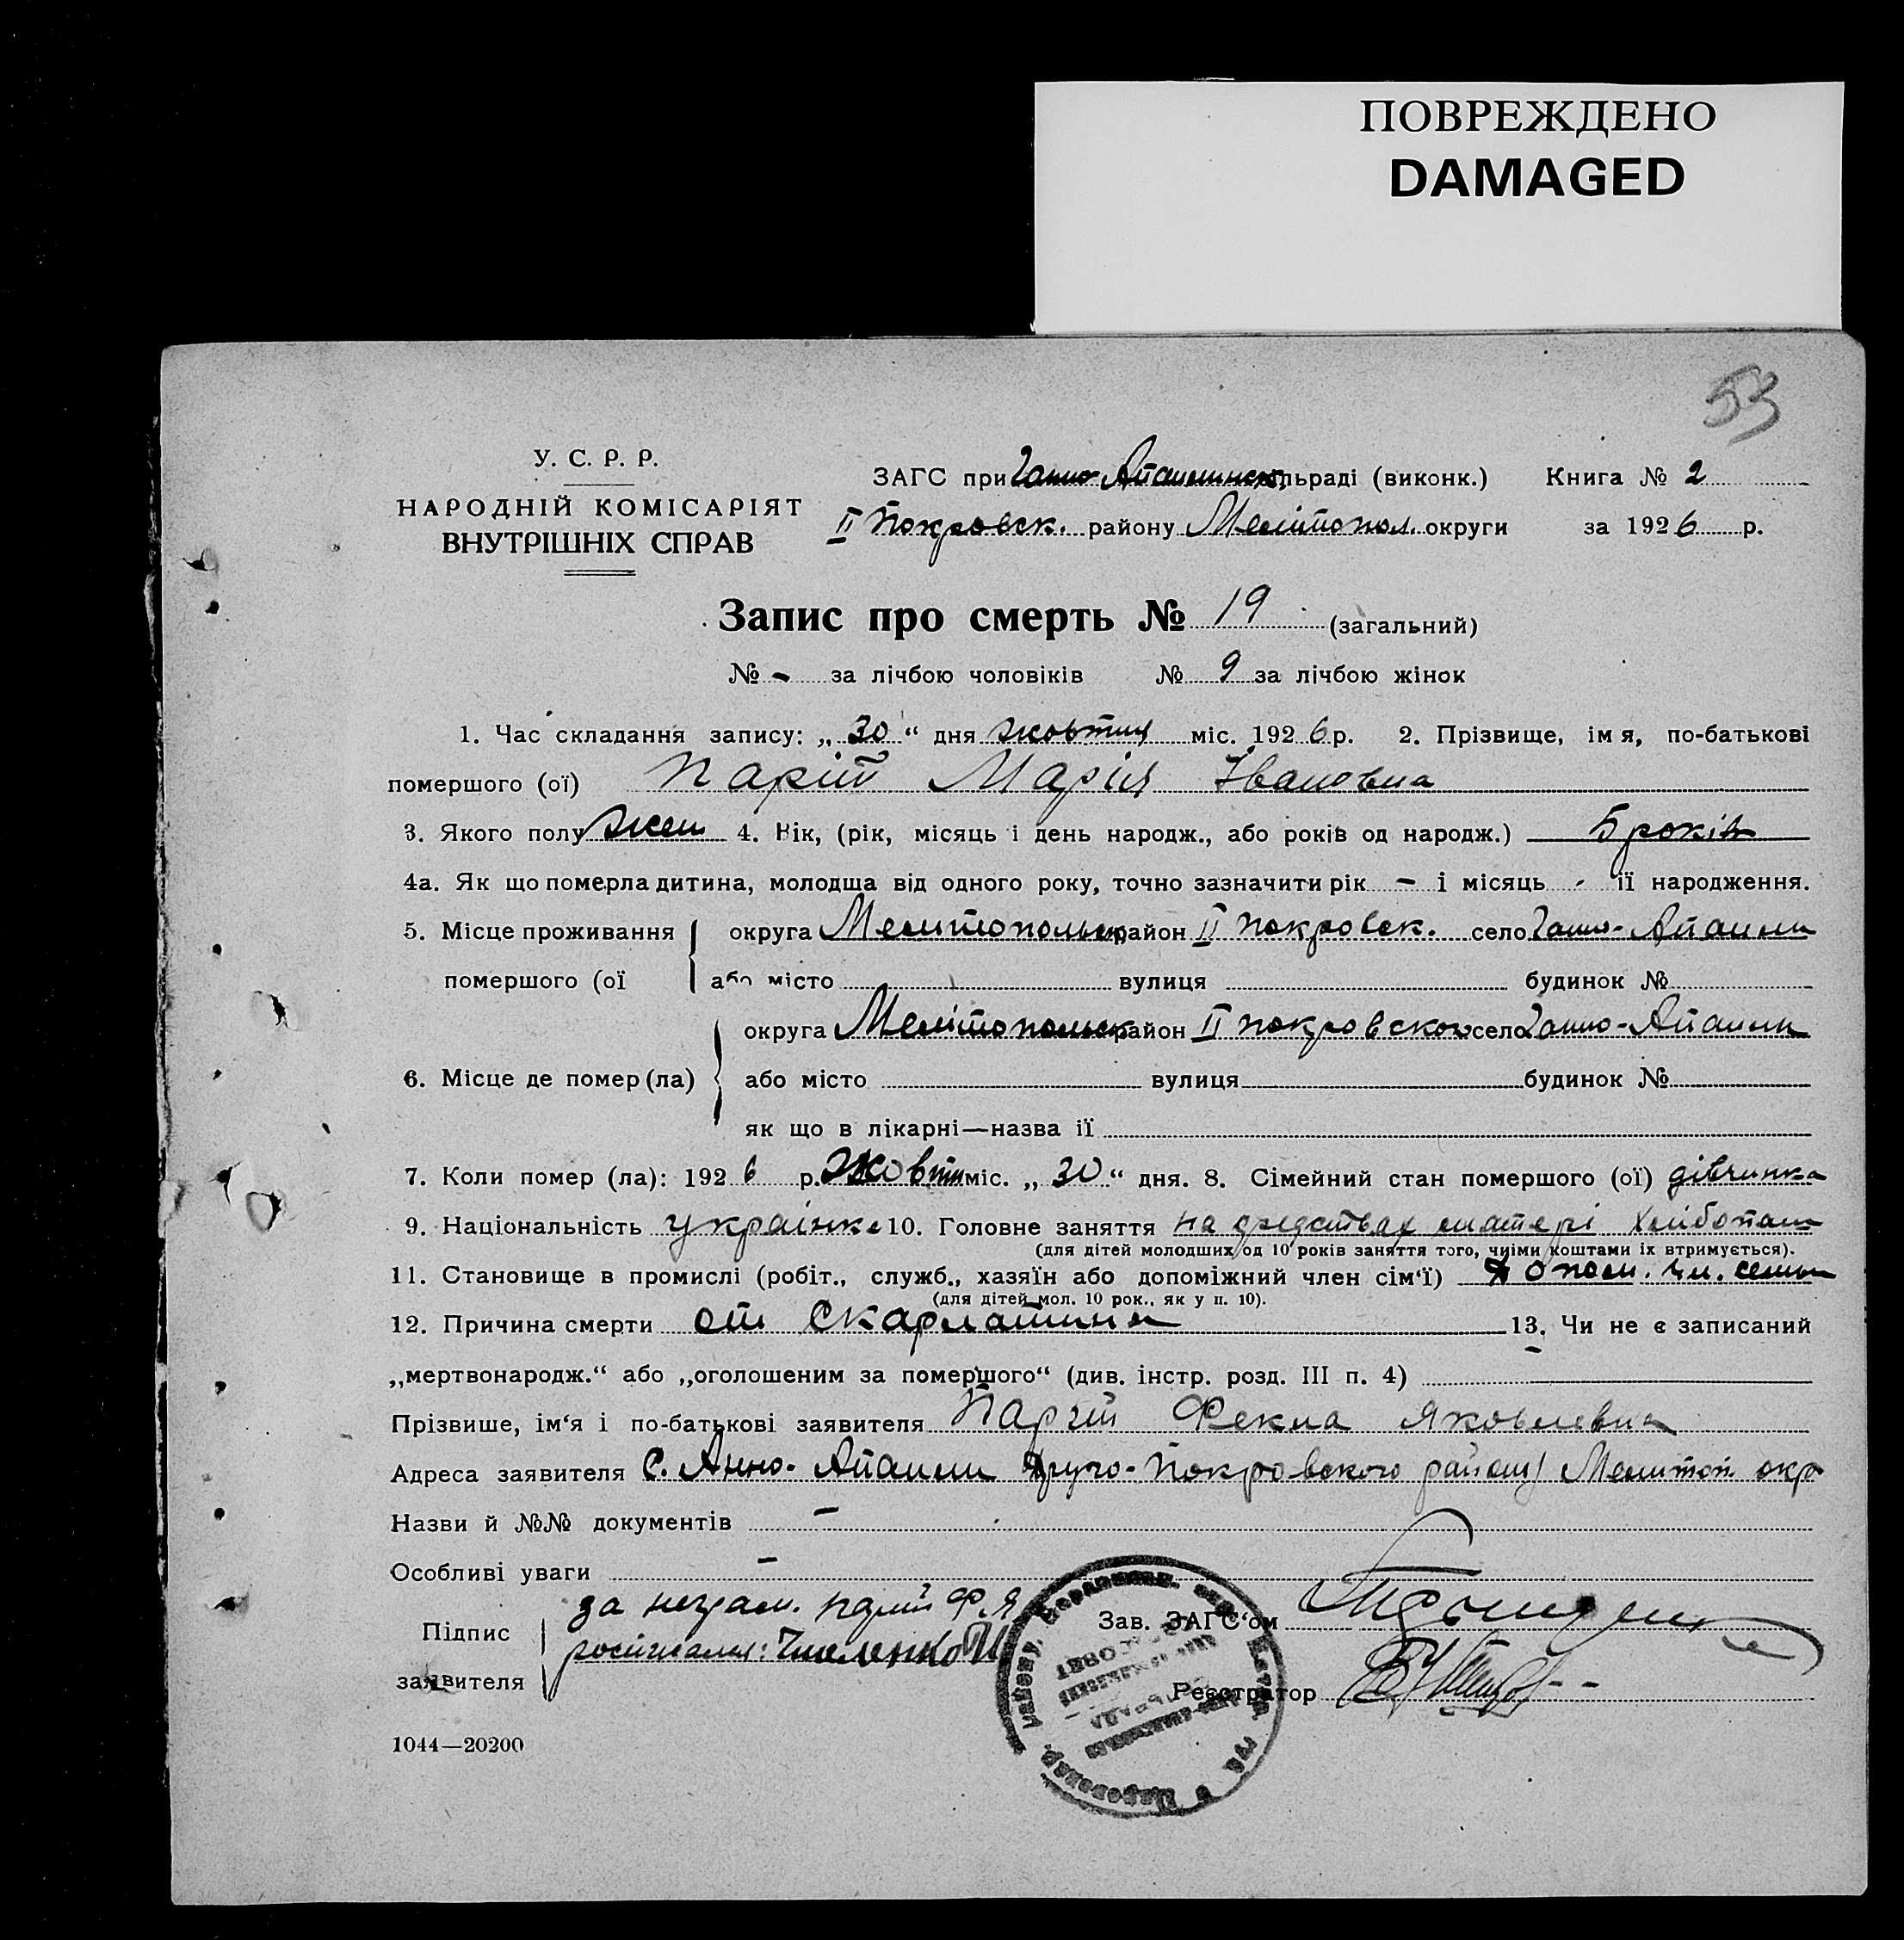 ПОВРЕЖДЕНО
DAMAGED
53
У. С. Р. Р.
НАРОДНІЙ КОМІСАРІЯТ
ВНУТРІШНІХ СПРАВ
ЗАГС при Ганно-Апаминск. сільраді (виконк.) Книга № 2
II Покровск. району Мелітопол. округи за 1926 р.
Запис про смерть № 19 (загальний)
№ - за лічбою чоловіків № 9 за лічбою жінок
1. Час складання запису: „ 30 “ дня жовтня міс. 1926 р. 2. Прізвище, імя, по-батькові
помершого (ої) Паріт Марія Івановна
3. Якого полу жен 4. Вік, (рік, місяць і день народж., або років од народж.) 5 років
4а. Як що померла дитина, молодща від одного року, точно зазначити рік - і місяць - її народження.
5. Місце проживання округа Мелитопольск район II Покровск. село Ганно-
помершого (ої або місто вулиця будинок №
округа Мелітопольск район II Покровского село Ганно-
6. Місце де помер (ла) або місто вулиця будинок №
як що в лікарні—назва її
7. Коли помер (ла): 1926 р. Жовтн міс. „ 30 “ дня. 8. Сімейний стан помершого (ої) дівчинка
9. Національність українка 10. Головне заняття на средствах матері хлібопаш
(для дітей молодших од 10 років заняття того, чиїми коштами їх втримується).
11. Становище в промислі (робіт., служб., хазяїн або допоміжний член сім‘ї) допом. чл. семьи
(для дітей мол. 10 рок., як у п. 10).
12. Причина смерти от Скарлатини 13. Чи не є записаний
„мертвонародж.“ або „оголошеним за помершого“ (див. інстр. розд. III п. 4)
Прізвише, ім‘я і по-батькові заявителя Паріт Фекла Яковлевна
Адреса заявителя С. Анно- Друго-Покровского району Мелитоп. окр
Назви й №№ документів -
Особливі уваги -
за неграм. Паріт Ф. Я
Підпис
заявителя
Зав. ЗАГС‘ом
Реєстратор
1044—20200